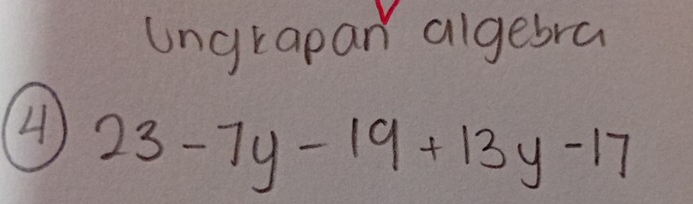 Ungkapan algebra
4 23 - 7y - 19 + 13y - 17